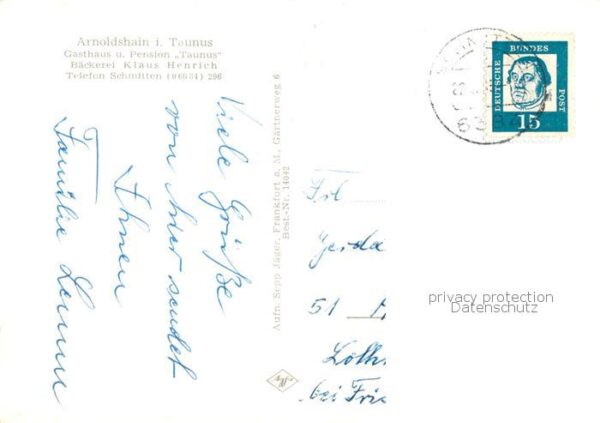 Arnoldshain i. Taunus
Gasthaus u. Pension „Taunus"
Bäckerei Klaus Henrich
Telefon Schmitten (06084) 296
Viele Grüße
von hier sendet
Ihnen
Familie
Aufn. Sepp Jäger, Frankfurt a. M., Gärtnerweg 6
Best.-Nr. 14042
DEUTSCHE
BUNDES
POST
15
Frl
Gerda
51
bei
privacy protection
Datenschutz